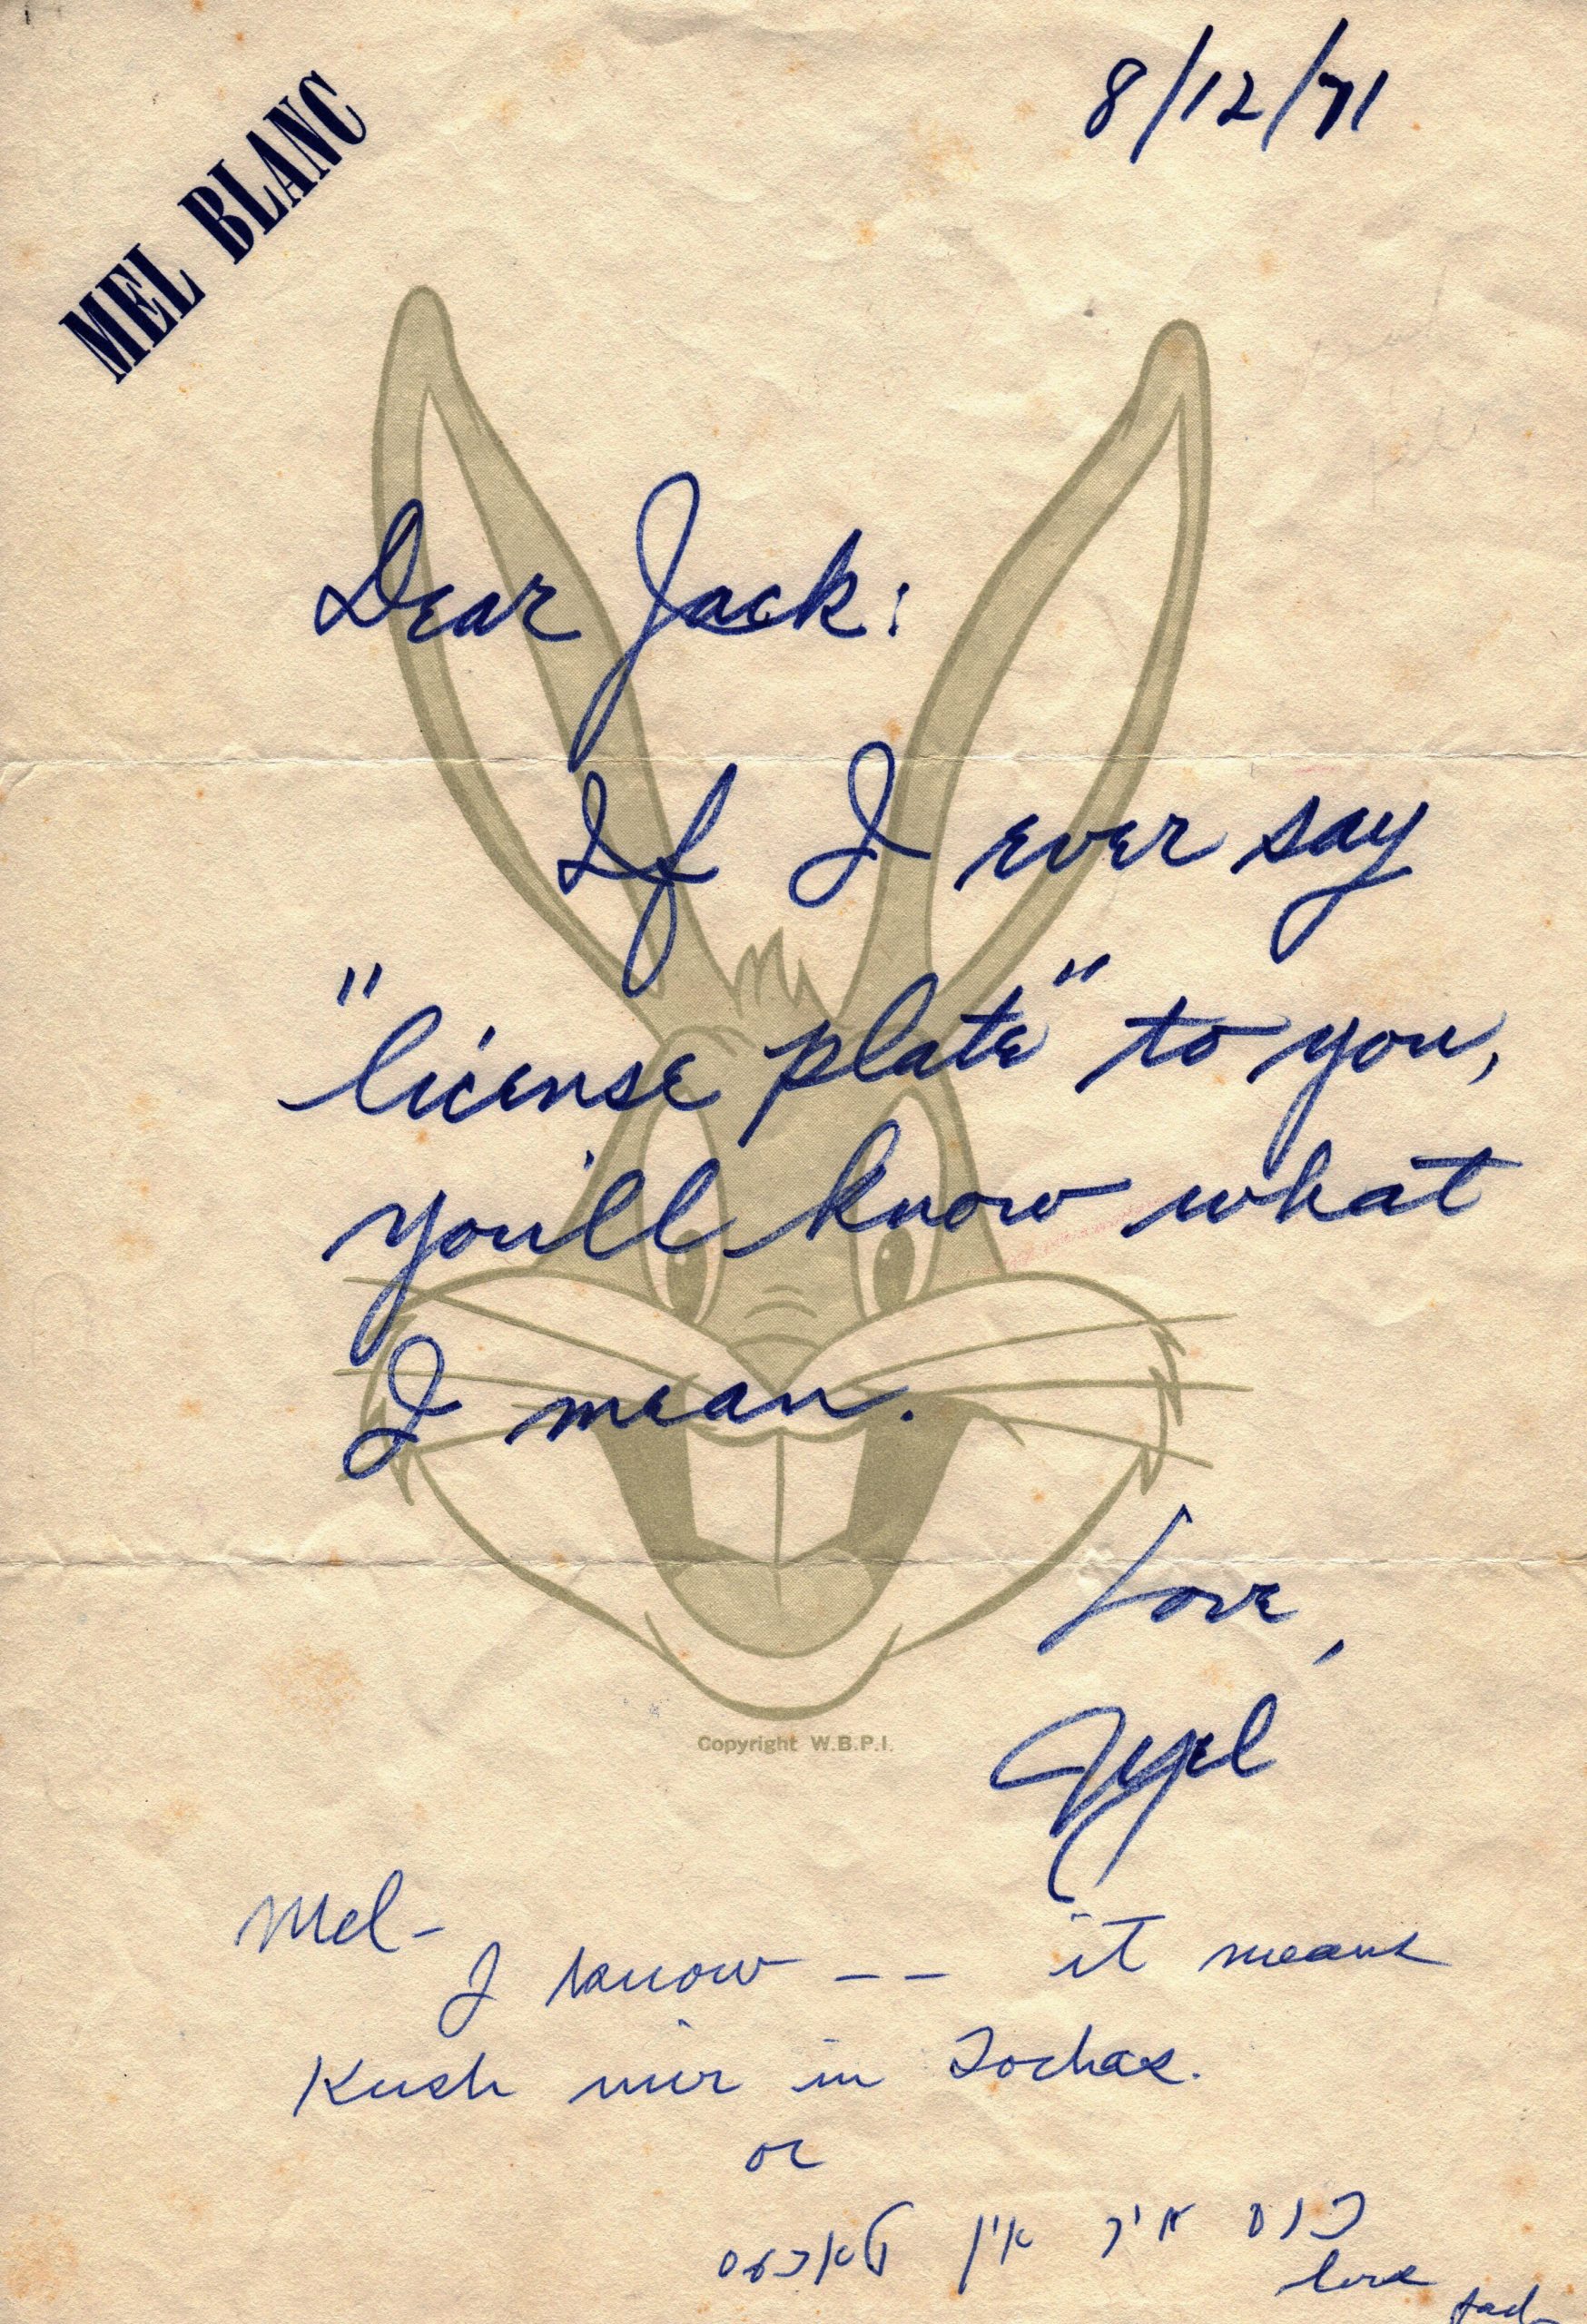 MEL BLANC
8/12/71
Dear Jack:
If I ever say
"license plate" to you,
you'll know what
I mean.
Love,
Mel
Copyright W.B.P.I.
Mel-
I know -- it means
Kush mir in Tochas.
or
כוס איר אין טאכעס
love
Jack